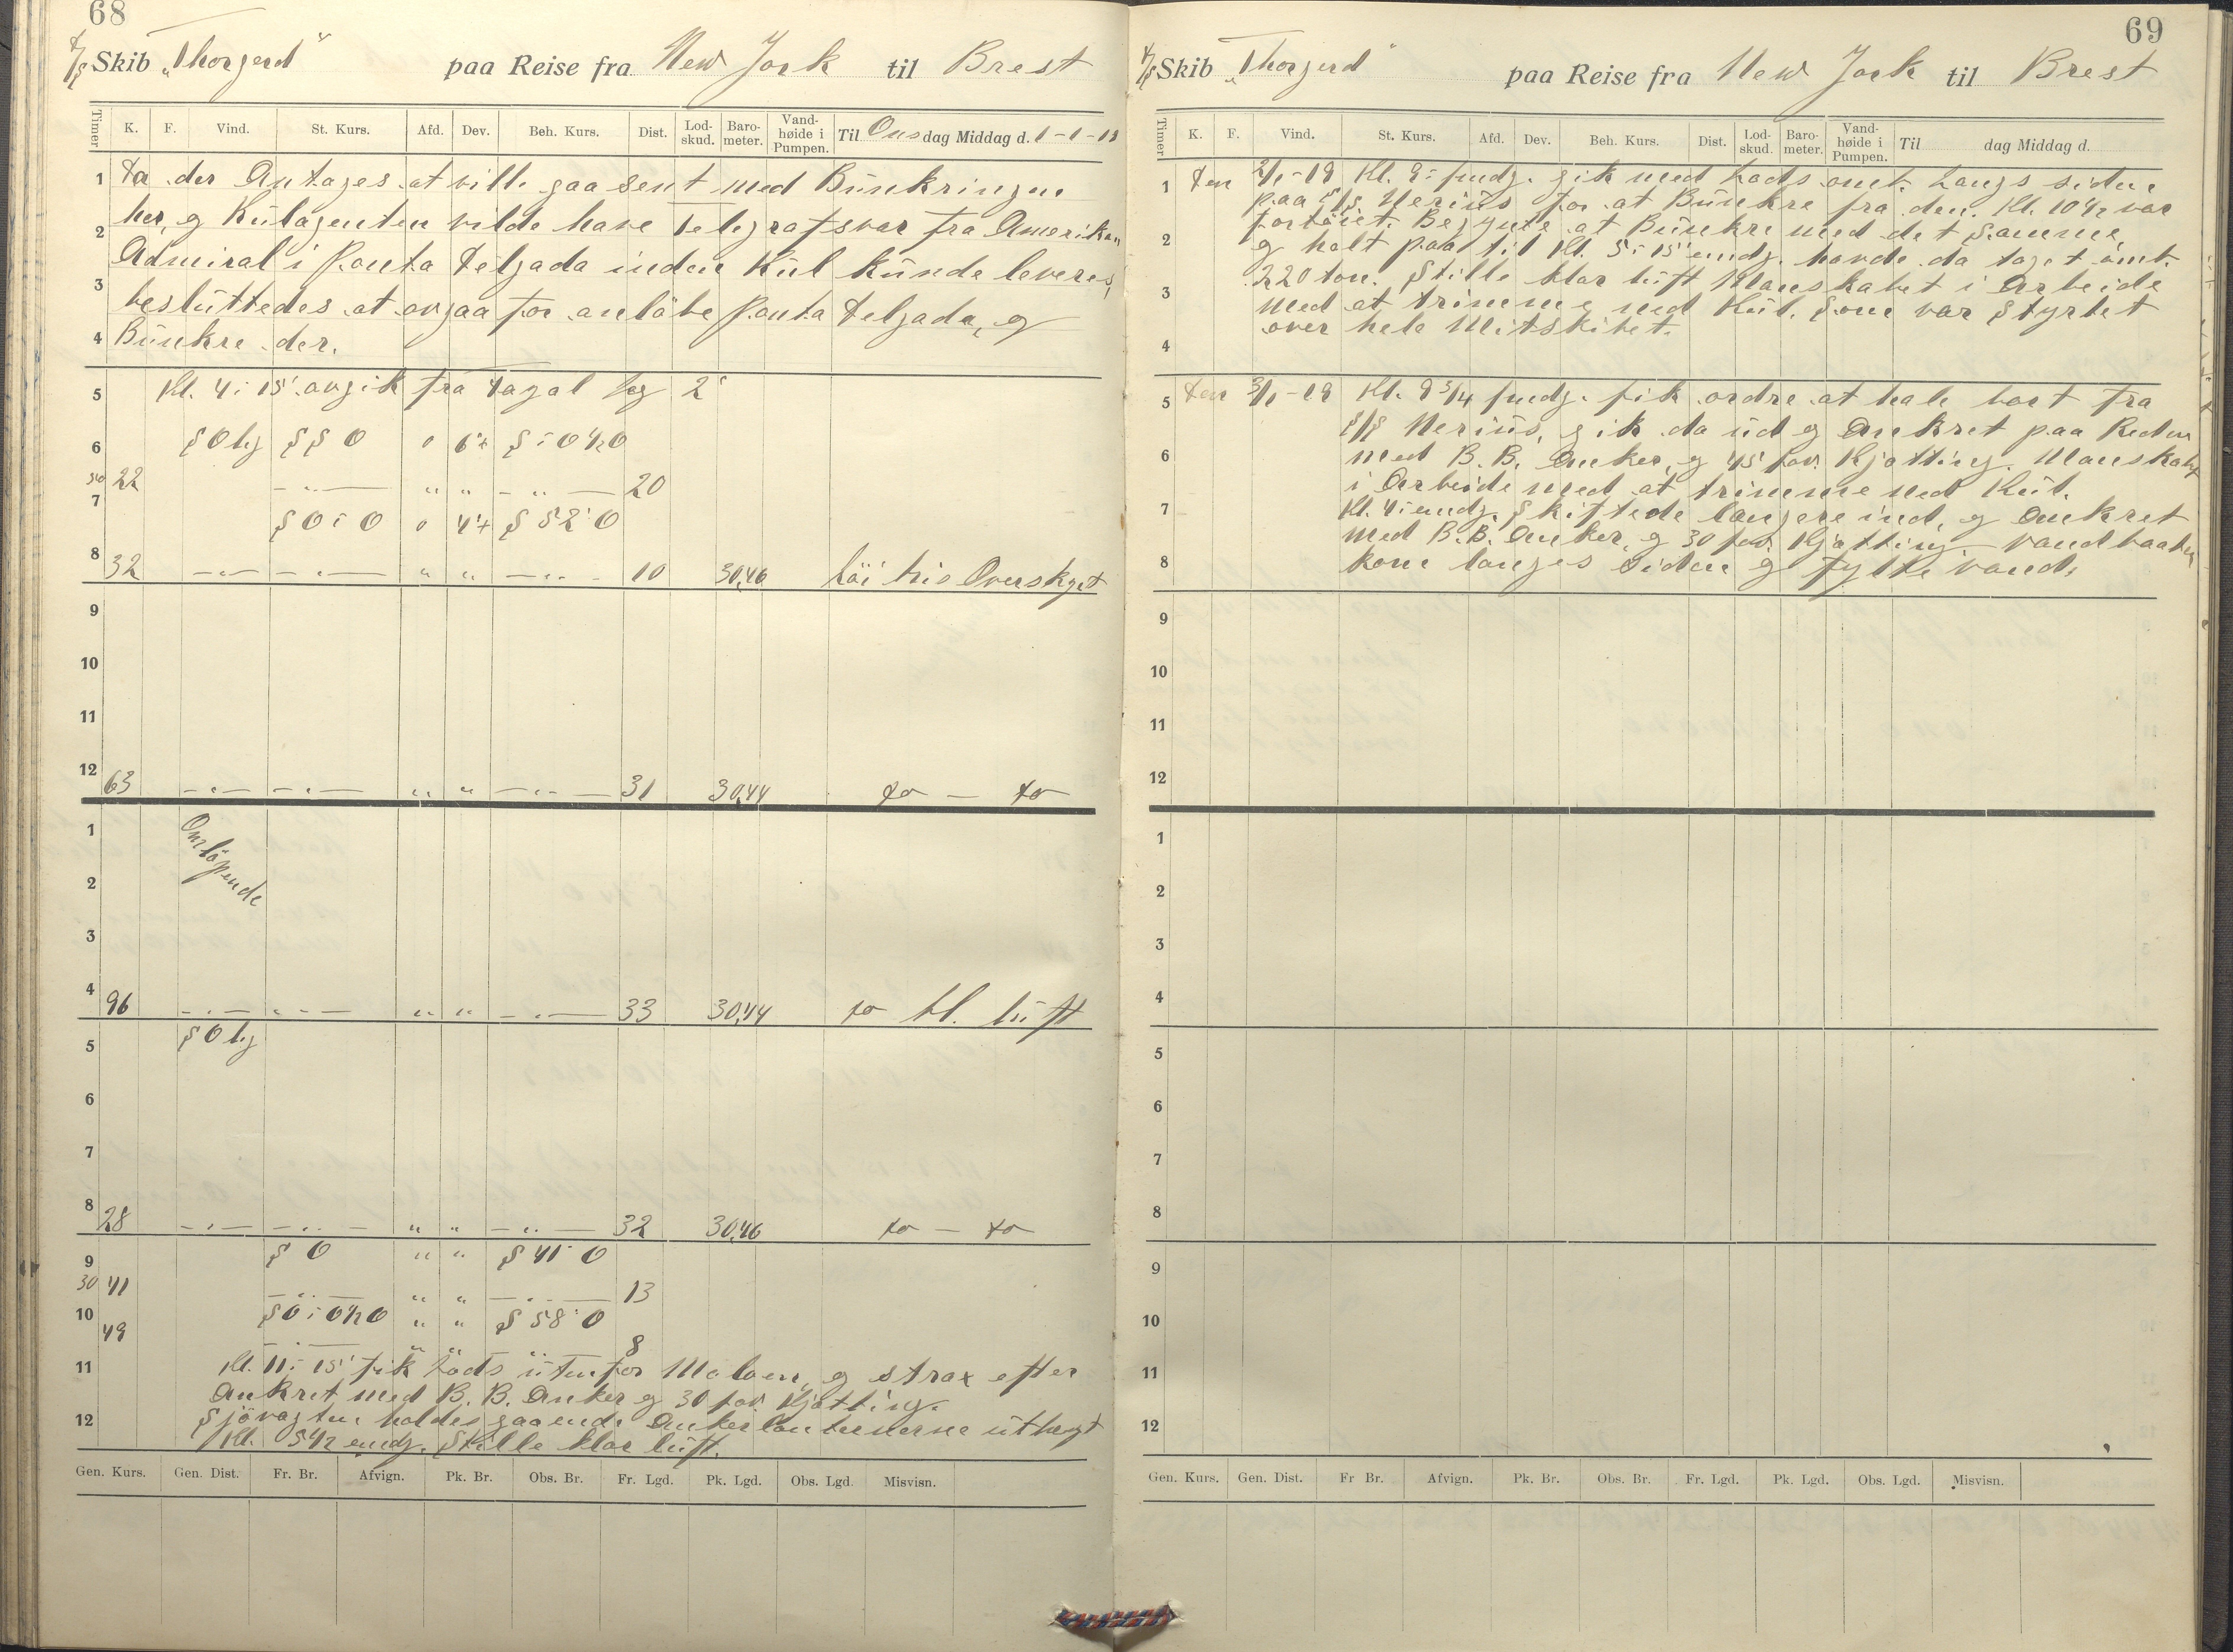 68
S/S Skib „Thorgerd" paa Reise fra New York til Brest
Timer K. F. Vind. St. Kurs. Afd. Dev. Beh. Kurs. Dist. Lod-skud. Baro-meter. Vand-høide i Pumpen. Til Onsdag Middag d. 1-1-18
1 Da der Antages at ville gaa sent med Bunkringen
2 her, og Kulagenten vilde have Telegrafsvar fra Amerikan
3 Admiral i Ponta Delgada inden Kul kunde leveres,
besluttedes at avgaa for anløbe Ponta Delgada, og
4 Bunkre der.
5 Kl. 4:15' avgik fra Fayal log 2'
6 SOlg SSO 0 6°+ S:O½O
50 22 -"- " " -"- 20
7 SO:O 0 4°+ S52°O
8 32 -"- -"- " " -"- 10 30,46 Löi bris Overskyet
9
10
11
12 63 -"- -"- " " -"- 31 30,44 do - do
1 Omløpende
2
3
4 96 -"- -"- " " -"- 33 30,44 do bl. luft
5 SOlg
6
7
8 28 -"- -"- " " -"- 32 30,46 do - do
9 SO " " S41°O
30 41 -"- " " -"- 13
10 SO:O½O " " S58°O
49 -"- " " " 8
11 Kl. 11:15' fik Lods utenfor Moloen, og strax efter
Ankret med B. B. Anker og 30 fav. Kjøtting.
12 Sjøvagten holdes gaaende Ankerlanternerne uthengt
Kl. 5½ emdg. Stille klar luft.
Gen. Kurs. Gen. Dist. Fr. Br. Afvign. Pk. Br. Obs. Br. Fr. Lgd. Pk. Lgd. Obs. Lgd. Misvisn.
69
S/S Skib „Thorgerd" paa Reise fra New York til Brest
Timer K. F. Vind. St. Kurs. Afd. Dev. Beh. Kurs. Dist. Lod-skud. Baro-meter. Vand-høide i Pumpen. Til dag Middag d.
1 Den 2/1-18 Kl. 9: fmdg. gik med Lods omb. Langs siden
paa S/S. Nerius for at Bunkre fra den. Kl. 10½ var
2 fortøiet. Begynte at Bunkre med det samme,
og holt paa til Kl. 5:15' emdg. havde da taget omb.
3 220 ton. Stille klar luft Manskabet i Arbeide
med at trimme ned Kul. Som var Styrtet
4 over hele Mitskibet.
5 Den 3/1-18 Kl. 9 3/4 fmdg. fik ordre at hale bort fra
S/S Nerius, gik da ud og Ankret paa Reden
6 med B. B. Anker, og 45 fav. Kjøtting. Manskabet
i Arbeide med at trimme ned Kul.
7 Kl. 4: emdg. Skiftede længere ind, og Ankret
med B. B. Anker, og 30 fav. Kjøtting. Vandbaaten
8 kom langs siden og fylte vand.
9
10
11
12
1
2
3
4
5
6
7
8
9
10
11
12
Gen. Kurs. Gen. Dist. Fr Br. Afvign. Pk. Br. Obs. Br. Fr. Lgd. Pk. Lgd. Obs. Lgd. Misvisn.